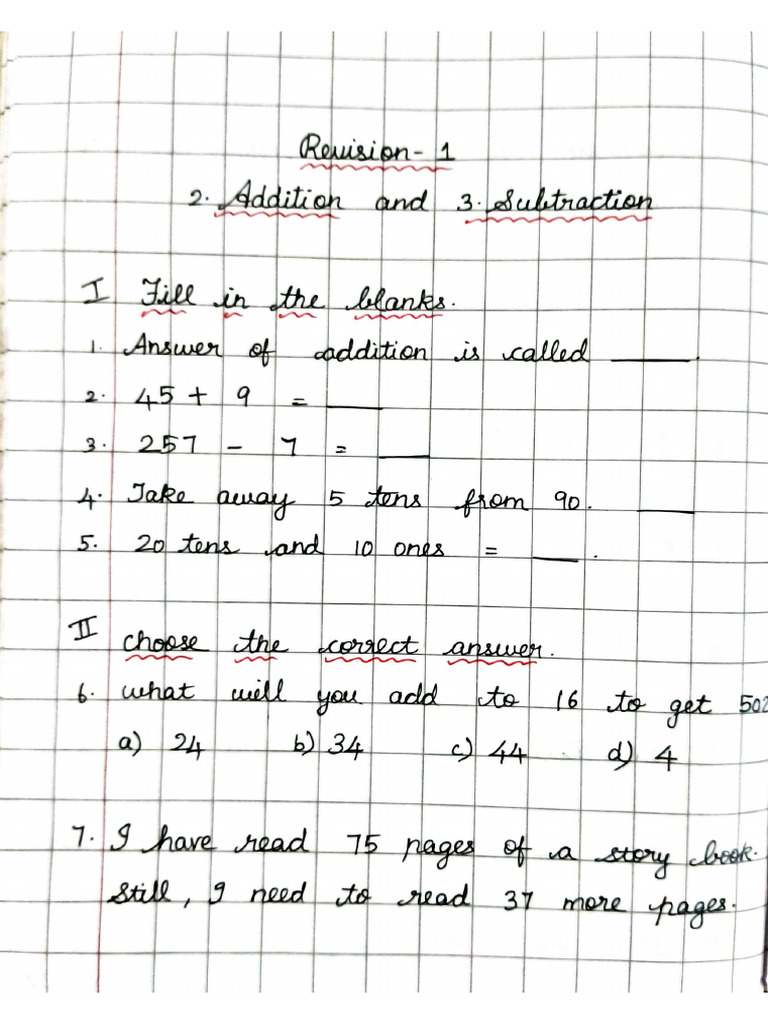 Revision - 1
2. Addition and 3. Subtraction
I Fill in the blanks.
1. Answer of addition is called ____.
2. 45 + 9 = ____
3. 257 - 7 = ____
4. Take away 5 tens from 90. ____
5. 20 tens and 10 ones = ____.
II choose the correct answer.
6. what will you add to 16 to get 50?
a) 24 b) 34 c) 44 d) 4
7. I have read 75 pages of a story book.
Still, I need to read 37 more pages.